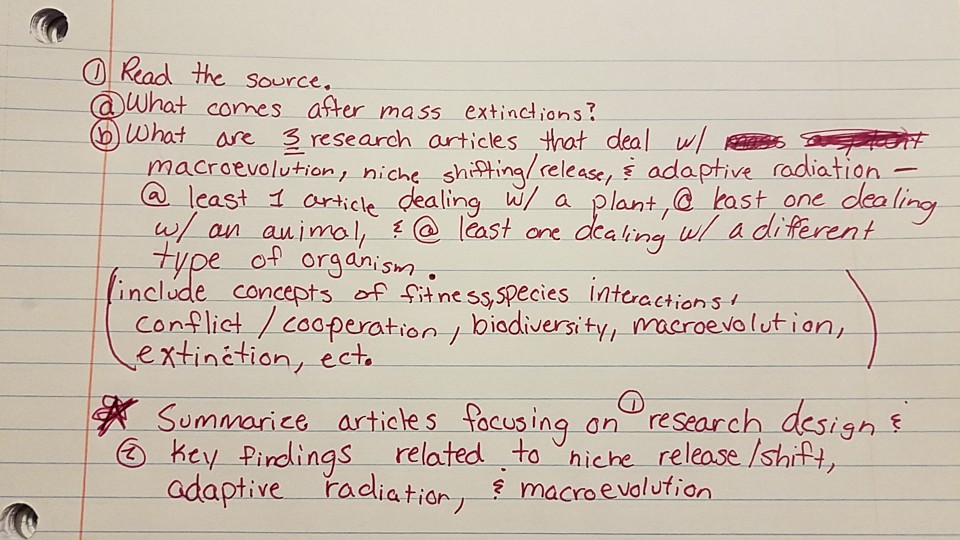 ① Read the source.
ⓐ What comes after mass extinctions?
ⓑ What are 3 research articles that deal w/
macroevolution, niche shifting/release, & adaptive radiation –
@ least 1 article dealing w/ a plant, @ least one dealing
w/ an animal, & @ least one dealing w/ a different
type of organism.
(include concepts of fitness, species interactions,
conflict / cooperation, biodiversity, macroevolution,
extinction, ect.)
* Summarize articles focusing on ① research design &
② key findings related to niche release/shift,
adaptive radiation, & macroevolution